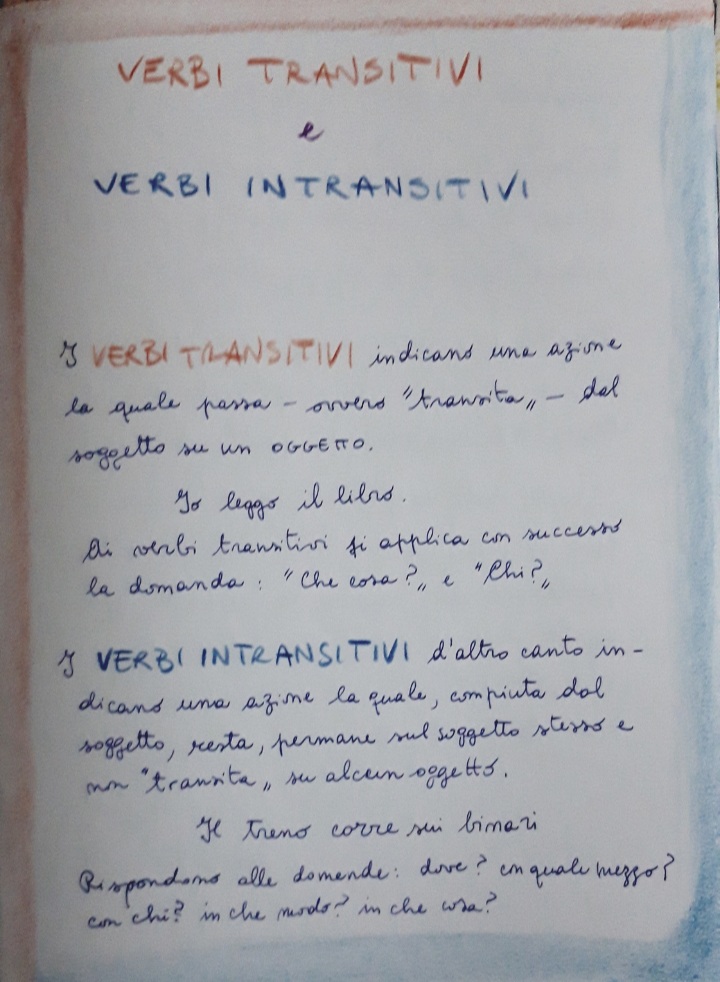 VERBI TRANSITIVI
e
VERBI INTRANSITIVI
I VERBI TRANSITIVI indicano una azione
la quale passa - ovvero "transita„ - dal
soggetto su un OGGETTO.
Io leggo il libro.
Ai verbi transitivi si applica con successo
la domanda: "Che cosa?„ e "Chi?„
I VERBI INTRANSITIVI d'altro canto in-
dicano una azione la quale, compiuta dal
soggetto, resta, permane sul soggetto stesso e
non "transita„ su alcun oggetto.
Il treno corre sui binari
Rispondono alle domande: dove? con quale mezzo?
con chi? in che modo? in che cosa?